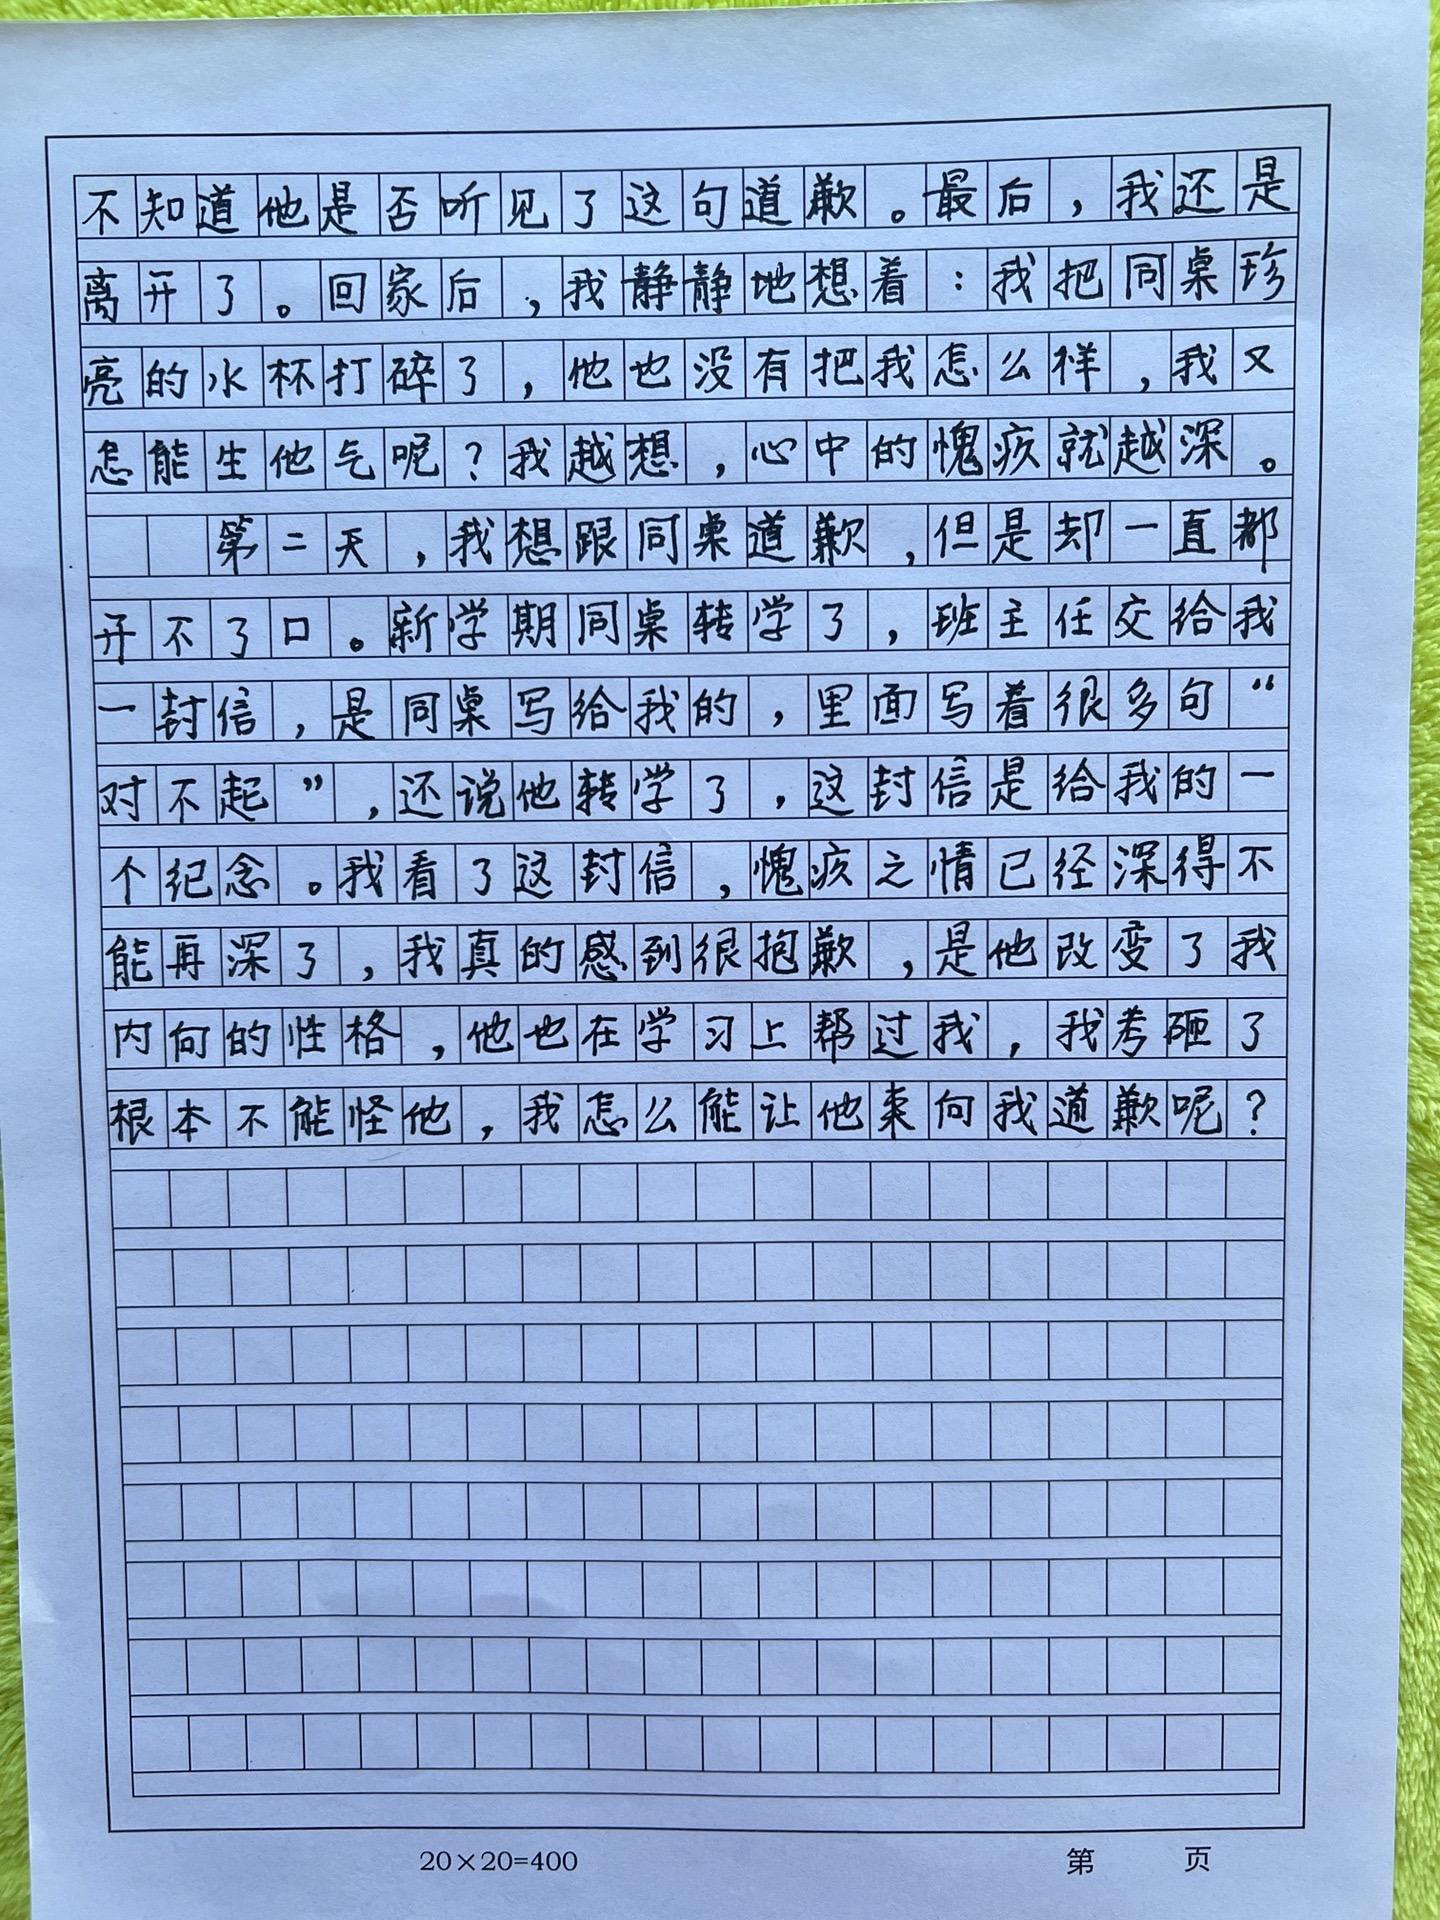 不知道他是否听见了这句道歉。最后，我还是
离开了。回家后，我静静地想着：我把同桌珍
亮的水杯打碎了，他也没有把我怎么样，我又
怎能生他气呢？我越想，心中的愧疚就越深。
第二天，我想跟同桌道歉，但是却一直都
开不了口。新学期同桌转学了，班主任交给我
一封信，是同桌写给我的，里面写着很多句“
对不起”，还说他转学了，这封信是给我的一
个纪念。我看了这封信，愧疚之情已经深得不
能再深了，我真的感到很抱歉，是他改变了我
内向的性格，他也在学习上帮过我，我考砸了
根本不能怪他，我怎么能让他来向我道歉呢？
20×20=400
第 页